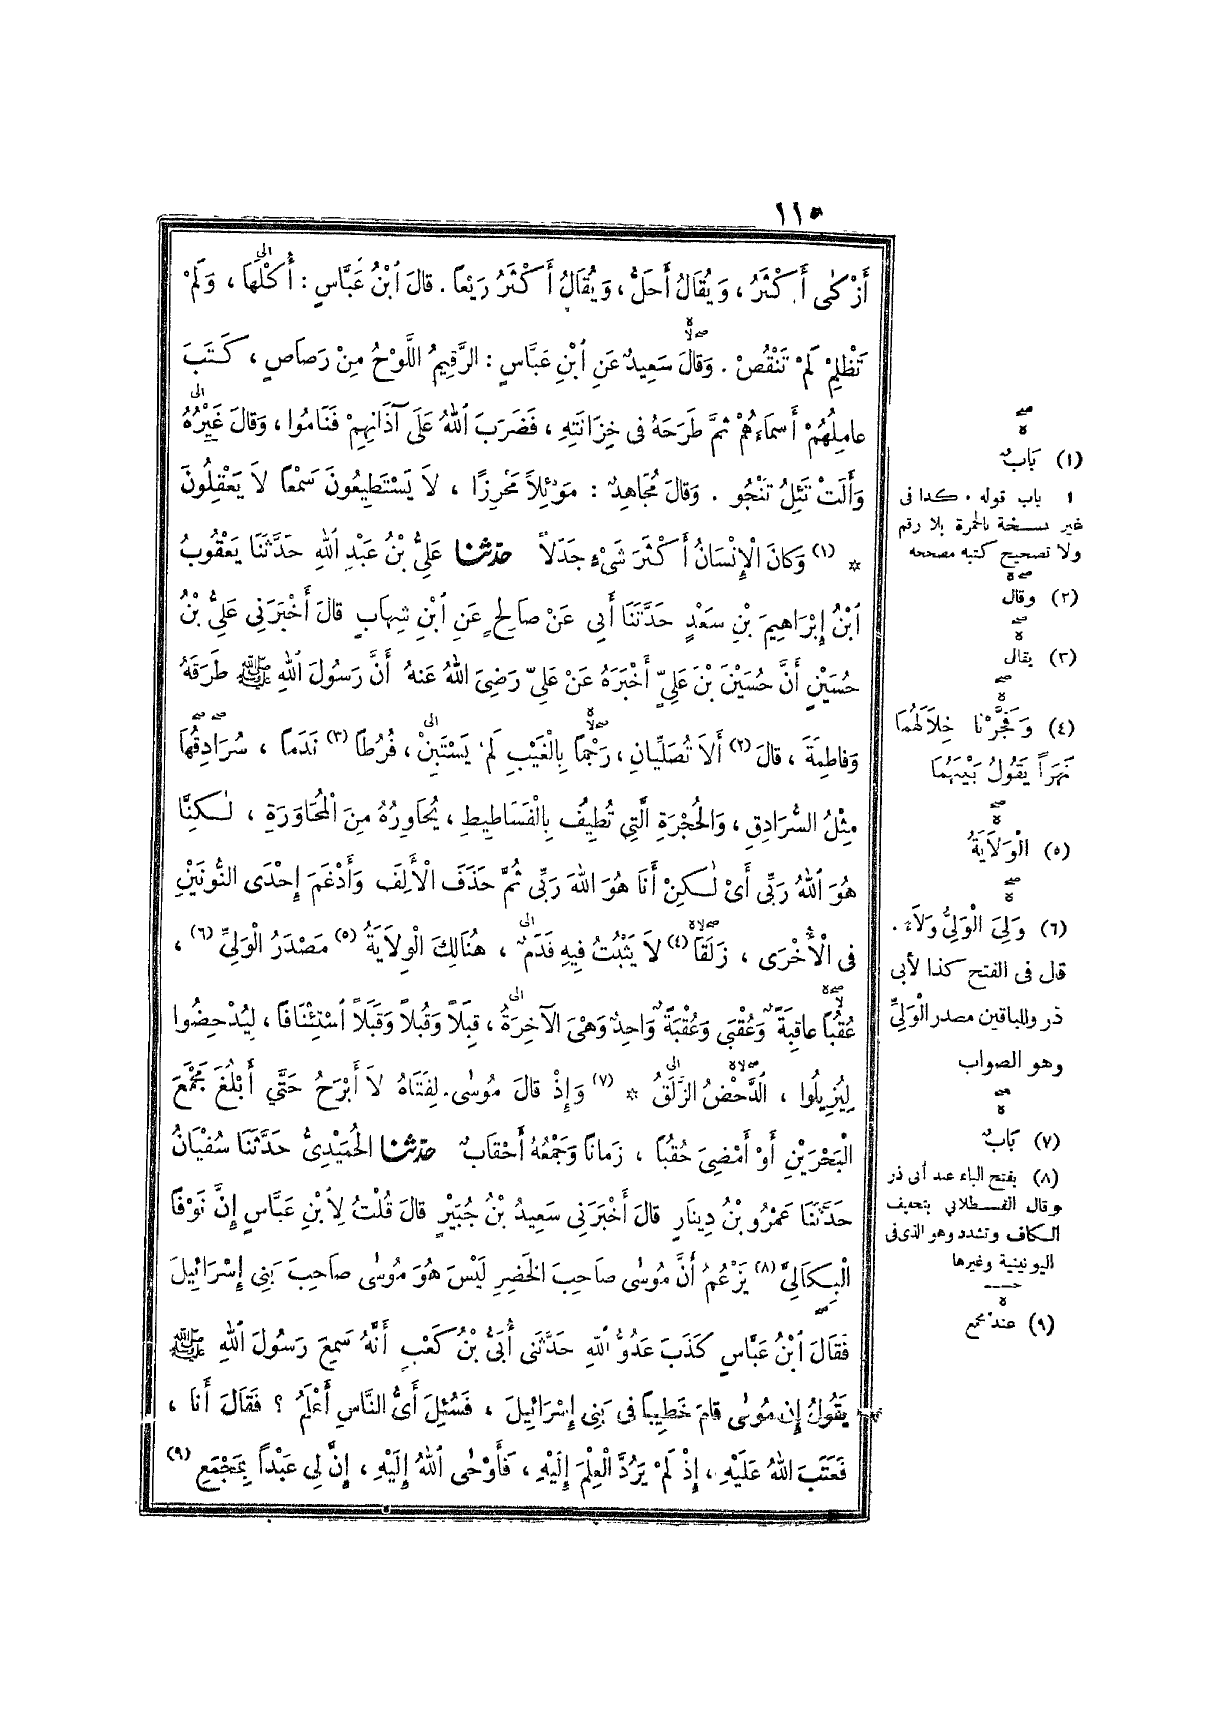 ١١٥
أَزْكٰى أَكْثَرُ ، وَيُقَالُ أَحَلُّ ، وَيُقَالُ أَكْثَرُ رَيْعًا . قالَ ٱبْنُ عَبَّاسٍ : أُكُلَهَا ، وَلَمْ
تَظْلِمْ لَمْ تَنْقُصْ . وَقالَ سَعِيدٌ عَنِ ٱبْنِ عَبَّاسٍ : الرَّقِيمُ اللَّوْحُ مِنْ رَصَاصٍ ، كَتَبَ
عامِلُهُمْ أَسْمَاءَهُمْ ثُمَّ طَرَحَهُ فى خِزَانَتِهِ ، فَضَرَبَ ٱللهُ عَلَى آذَانِهِمْ فَنَامُوا ، وَقالَ غَيْرُهُ
وَأَلَتْ تَئِلُ تَنْجُو . وَقالَ مُجَاهِدٌ : مَوْئِلاً مَحْرِزًا ، لاَ يَسْتَطِيعُونَ سَمْعًا لاَ يَعْقِلُونَ
* (١) وَكانَ الْإِنْسَانُ أَكْثَرَ شَىْءٍ جَدَلاً حدّثنا عَلِيُّ بْنُ عَبْدِ ٱللهِ حَدَّثَنَا يَعْقُوبُ
ٱبْنُ إِبْرَاهِيمَ بْنِ سَعْدٍ حَدَّثَنَا أَبِي عَنْ صَالِحٍ عَنِ ٱبْنِ شِهَابٍ قالَ أَخْبَرَنِي عَلِيُّ بْنُ
حُسَيْنٍ أَنَّ حُسَيْنَ بْنَ عَلِيٍّ أَخْبَرَهُ عَنْ عَلِيٍّ رَضِىَ ٱللهُ عَنْهُ أَنَّ رَسُولَ ٱللهِ ﷺ طَرَقَهُ
وَفاطِمَةَ ، قالَ (٢) أَلاَ تُصَلِّيَانِ ، رَجْمًا بِالْغَيْبِ لَمْ يَسْتَبِنْ ، فُرُطًا (٣) نَدَمًا ، سُرَادِقُهَا
مِثْلُ السُّرَادِقِ ، وَالْحُجْرَةِ الَّتِي تُطِيفُ بِالْفَسَاطِيطِ ، يُحَاوِرُهُ مِنَ الْمُحَاوَرَةِ ، لٰكِنَّا
هُوَ ٱللهُ رَبِّى أَىْ لٰكِنْ أَنَا هُوَ ٱللهُ رَبِّى ثُمَّ حَذَفَ الْأَلِفَ وَأَدْغَمَ إِحْدَى النُّونَيْنِ
فى الْأُخْرَى ، زَلَقًا (٤) لاَ يَثْبُتُ فِيهِ قَدَمٌ ، هُنَالِكَ الْوِلاَيَةُ (٥) مَصْدَرُ الْوَلِيِّ (٦) ،
عُقُبًا عاقِبَةً وَعُقْبَى وَعُقْبَةً وَاحِدٌ وَهْىَ الآخِرَةُ ، قِبَلاً وَقُبُلاً وَقَبَلاً ٱسْتِئْنَافًا ، لِيُدْحِضُوا
لِيُزِيلُوا ، الدَّحْضُ الزَّلَقُ * (٧) وَإِذْ قالَ مُوسٰى لِفَتَاهُ لاَ أَبْرَحُ حَتَّى أَبْلُغَ مَجْمَعَ
الْبَحْرَيْنِ أَوْ أَمْضِىَ حُقُبًا ، زَمَانًا وَجَمْعُهُ أَحْقَابٌ حدّثنا الْحُمَيْدِىُّ حَدَّثَنَا سُفْيَانُ
حَدَّثَنَا عَمْرُو بْنُ دِينَارٍ قالَ أَخْبَرَنِي سَعِيدُ بْنُ جُبَيْرٍ قالَ قُلْتُ لِابْنِ عَبَّاسٍ إِنَّ نَوْفًا
الْبِكَالِىَّ (٨) يَزْعُمُ أَنَّ مُوسٰى صَاحِبَ الْخَضِرِ لَيْسَ هُوَ مُوسٰى صَاحِبَ بَنِي إِسْرَائِيلَ
فَقَالَ ٱبْنُ عَبَّاسٍ كَذَبَ عَدُوُّ ٱللهِ حَدَّثَنِى أُبَىُّ بْنُ كَعْبٍ أَنَّهُ سَمِعَ رَسُولَ ٱللهِ ﷺ
يَقُولُ إِنَّ مُوسٰى قامَ خَطِيبًا فى بَنِي إِسْرَائِيلَ ، فَسُئِلَ أَىُّ النَّاسِ أَعْلَمُ ؟ فَقَالَ أَنَا ،
فَعَتَبَ ٱللهُ عَلَيْهِ ، إِذْ لَمْ يَرُدَّ الْعِلْمَ إِلَيْهِ ، فَأَوْحٰى ٱللهُ إِلَيْهِ ، إِنَّ لِي عَبْدًا بِمَجْمَعِ (٩)
(١) بَابٌ
١ باب قوله . كذا فى
غير نسخة بالحمرة بلا رقم
ولا تصحيح كتبه مصححه
(٢) وقال
(٣) يقال
(٤) وَفَجَّرْنَا خِلاَلَهُمَا
نَهَرًا يَقُولُ بَيْنَهُمَا
(٥) الْوَلاَيَةُ
(٦) وَلِيَ الْوَلِيُّ وَلاَءً .
قال فى الفتح كذا لأبى
ذر وللباقين مصدر الْوَلِيِّ
وهو الصواب
(٧) بَابٌ
(٨) بفتح الباء عند أبى ذر
وقال القسطلانى بتخفيف
الكاف وتشدد وهو الذى فى
اليونينية وغيرها
(٩) عند مجمع